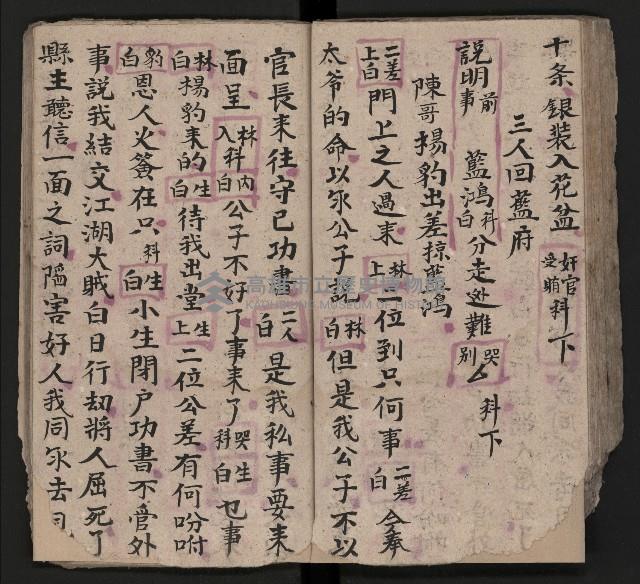 十条銀装入花盆 奸官受賄科下
三人回藍府
説明前事 藍鴻科白分走逃難哭別么科下
陳哥揚豹出差掠藍鴻
二差上白門上之人過来林上位到只何事二差白今奉
太爺的命以求公子説林白但是我公子不以
官長来往守己功書二人白是我私事要来
面呈林入科内白公子不好了事来了哭科生白乜事
林白揚豹来的生白待我出堂生上二位公差有何吩咐
豹白恩人火簽在只科生白小生閉户功書不管外
事説我結交江湖大賊白日行劫將人屈死了
縣主聽信一面之詞陷害好人我同你去見
高雄市立歷史博物館
KAOHSIUNG MUSEUM OF HISTORY